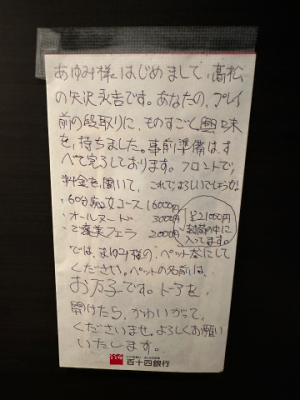 あゆみ様、はじめまして、高松
の矢沢永吉です。あなたの、プレイ
前の段取りに、ものすごく興味
を、持ちました。事前準備は、す
べて完了しております。フロントで、
料金を聞いて、これでよろしいでしょうか?
・60分痴女コース 16000円
・オールヌード 3000円
・ご褒美フェラ 2000円
¥21000円
封筒の中に
入ってます。
では、まゆみ様の、ペット君にして
ください。ペットの名前は、
お万子です。ドアを、
開けたら、かわいがって、
くださいませ。よろしくお願い
いたします。
百十四銀行